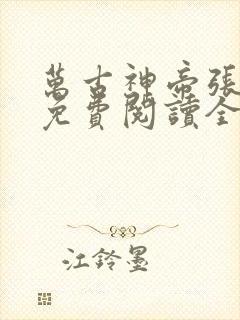 萬古神帝張
免費閱讀全
江鈴墨